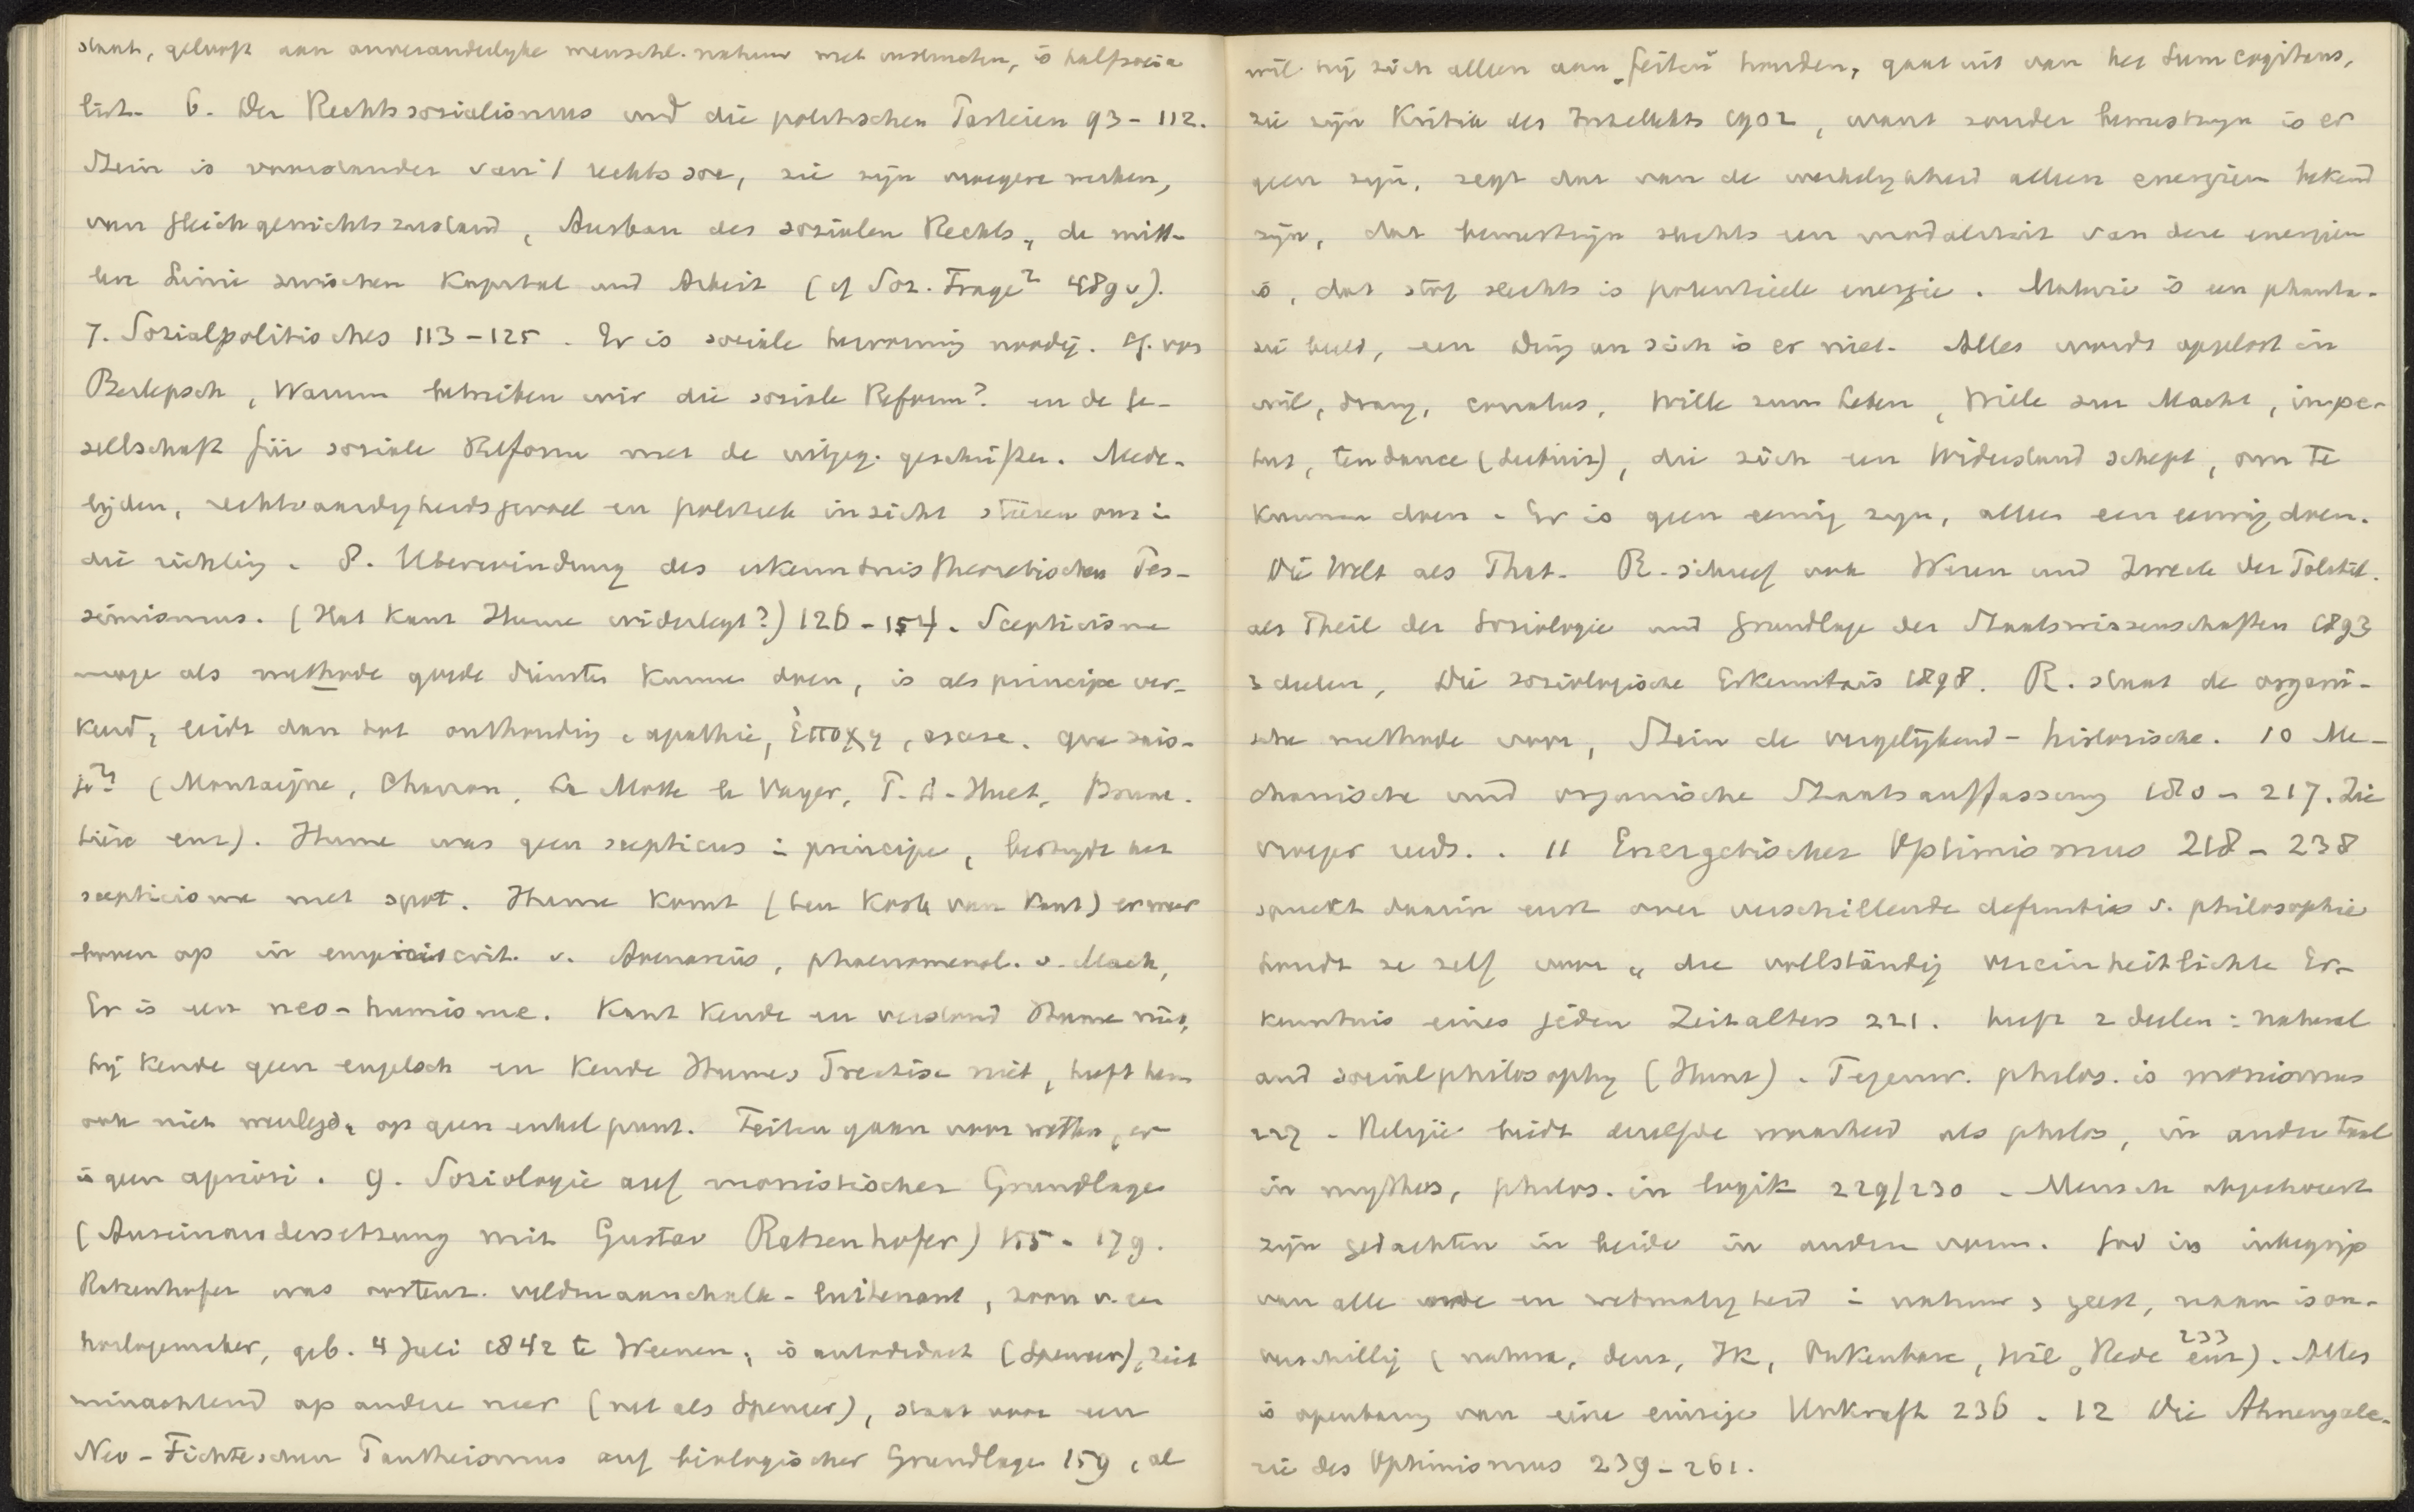 staat, gelooft aan onveranderlyke menschl. natuur met instincten, is halfsocia
list. 6. Der Rechtssozialismus und die politischen Parteien 93-112.
Stein is voorstander van 't rechtssoc, zie zijn vroegere werken,
van Gleichgewichtszustand, Ausbau des sozialen Rechts, de mitt-
len Linie zwischen Kapital und Arbeit (cf Soz. Frage² 489v).
7. Sozialpolitisches 113-125. Er is sociale hervorming noodig. Cf. von
Berlepsch, Warum betreiben wir die soziale Reform? en de Ge-
sellschaft für soziale Reform met de uitgeg. geschriften. Mede-
lijden, rechtvaardigheidsgevoel en politiek inzicht sturen ons in
die richting. 8. Ueberwindung des erkenntnistheoretischen Pes-
simismus. (Hat Kant Hume widerlegt?) 126-154. Scepticisme
moge als methode goede diensten kunnen doen, is als principe ver-
keerd, leidt dan tot onthouding, apathie, ἐποχη, ascese. Que sais-
je? (Montaigne, Charron, La Mothe le Vayer, P. D. Huet, Brune-
tière enz). Hume was geen scepticus in principe, bestrydt het
scepticisme met spot. Hume komt (ten koste van Kant) er weer
boven op in empiriocrit. v. Avenarius, phaenomenol. v. Mach,
Er is een neo-humisme. Kant kende en verstond Hume niet,
hij kende geen engelsch en kende Humes Treatise niet, heeft hem
ook niet weerlegd, op geen enkel punt. Feiten gaan voor wetten, er
is geen apriori. 9. Soziologie auf monistischer Grundlage
(Auseinandersetzung mit Gustav Ratzenhofer) 155-179.
Ratzenhofer was oostenr. veldmaarschalk-luitenant, zoon v. een
horlogemaker, geb. 4 Juli 1842 te Weenen, is autodidact (Spencer), ziet
minachtend op andere neer (net als Spencer), staat voor een
Neo-Fichteschen Pantheismus auf biologischer Grundlage 159, al
wil hij zich alleen aan „feiten” houden, gaat uit van het Sum cogitans,
zie zijn Kritik des Intellekts 1902, want zonder bewustzijn is er
geen zijn, zegt dat van de werkelykheid alleen energieën bekend
zijn, dat bewustzijn slechts een modaliteit van deze energieën
is, dat stof slechts is potentieele energie. Materie is een phanta-
sie beeld, een Ding an sich is er niet. Alles wordt opgelost in
wil, drang, conatus, Wille zum Leben, Wille zur Macht, impe-
tus, tendance (Leibniz), die zich een Widerstand schept, om te
kunnen doen. Er is geen eeuwig zyn, alleen een eeuwig doen.
Die Welt als That. R. schreef ook Wesen und Zweck der Politik.
als Theil der Soziologie und Grundlage der Staatswissenschaften 1893
3 deelen, Die soziologische Erkenntnis 1898. R. staat de organi-
sche methode voor, Stein de vergelijkend-historische. 10 Me-
chanische und organische Staatsauffassung 180-217. Zie
vroeger reeds. . 11 Energetischer Optimismus 218-238
spreekt daarin eerst over verschillende definities v. philosophie
houdt ze zelf voor „die vollständig vereinheitlichte Er-
kenntnis eines jeden Zeitalters 221. heeft 2 deelen: natural
and socialphilosophy (Hunt). Tegenw. philos. is monismus
227. Religie biedt dezelfde waarheid als philos, in andere taal
in mythus, philos. in logik 229/230. Mensch objectiveert
zijn gedachten in beide in anderen vorm. God is inbegrip
van alle orde en wetmatigheid in natuur & geest, naam is on-
verschillig (natura, deus, Ik, Onkenbare, Wil, Rede enz 233). Alles
is openbaring van eine einzige Urkraft 236. 12 Die Ahnengale-
rie des Optimismus 239-261.